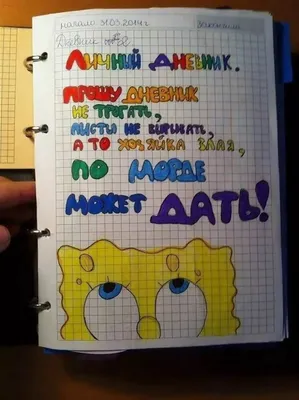 начало 31.03.2014г.
Дневник №2
ЛИЧНЫЙ ДНЕВНИК.
ПРОШУ ДНЕВНИК
НЕ ТРОГАТЬ,
ЛИСТЫ НЕ ВЫРЫВАТЬ,
А ТО ХОЗЯЙКА ЗЛАЯ,
ПО МОРДЕ
МОЖЕТ ДАТЬ!